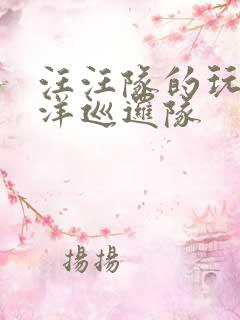 汪汪隊的玩
洋巡邏隊
揚揚